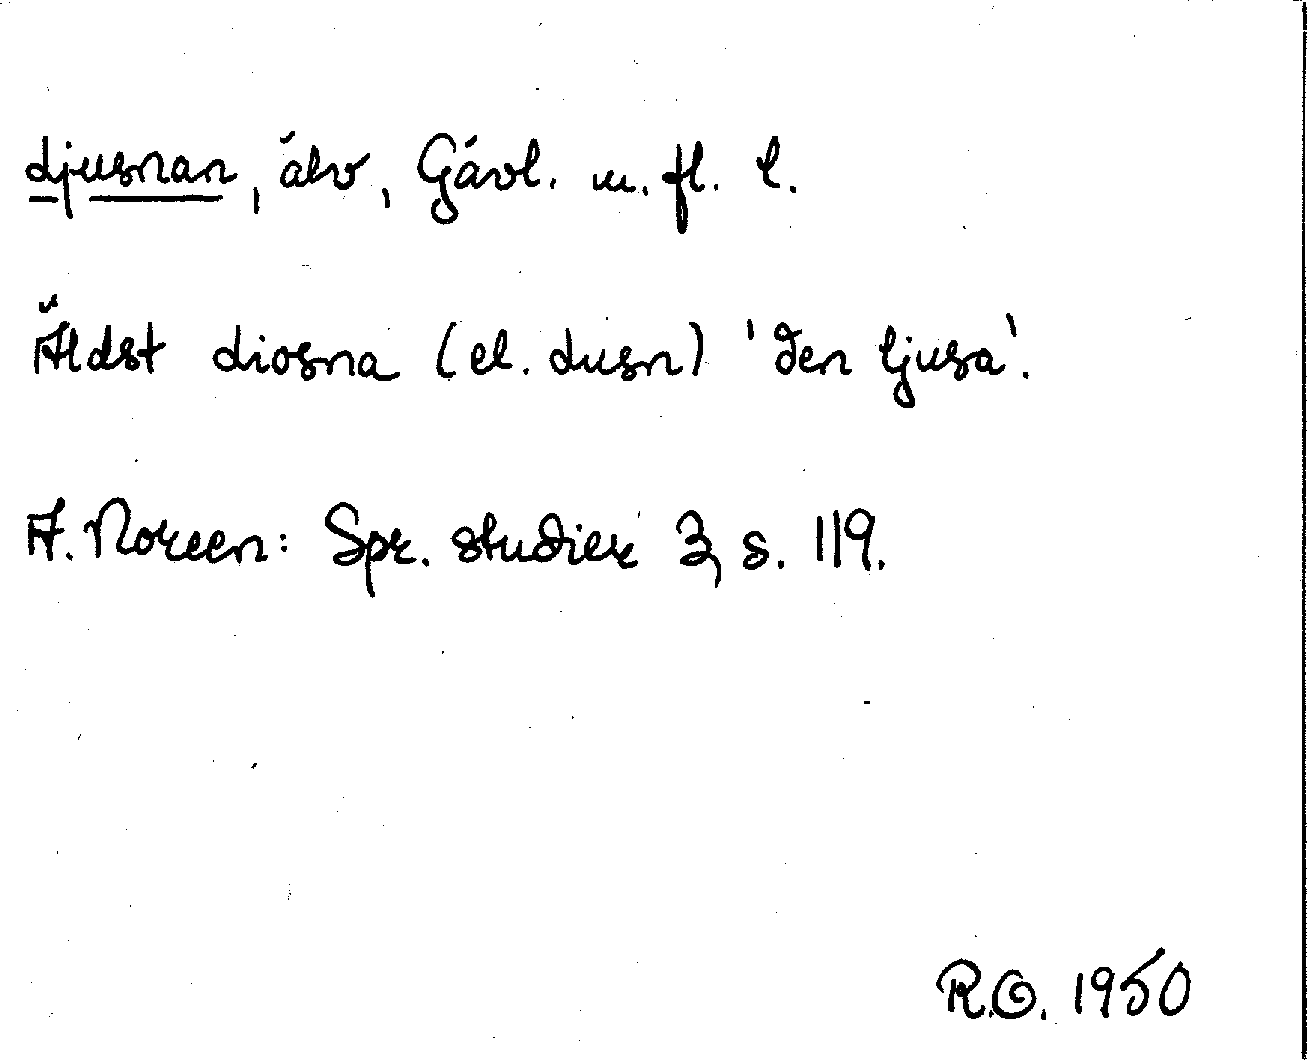 Ljusnan, älv, Gävl. m. fl. l.
Äldst Liosna (el. Lusn) 'den ljusa'.
A. Noreen: Spr. studier 3, s. 119.
R.O. 1950